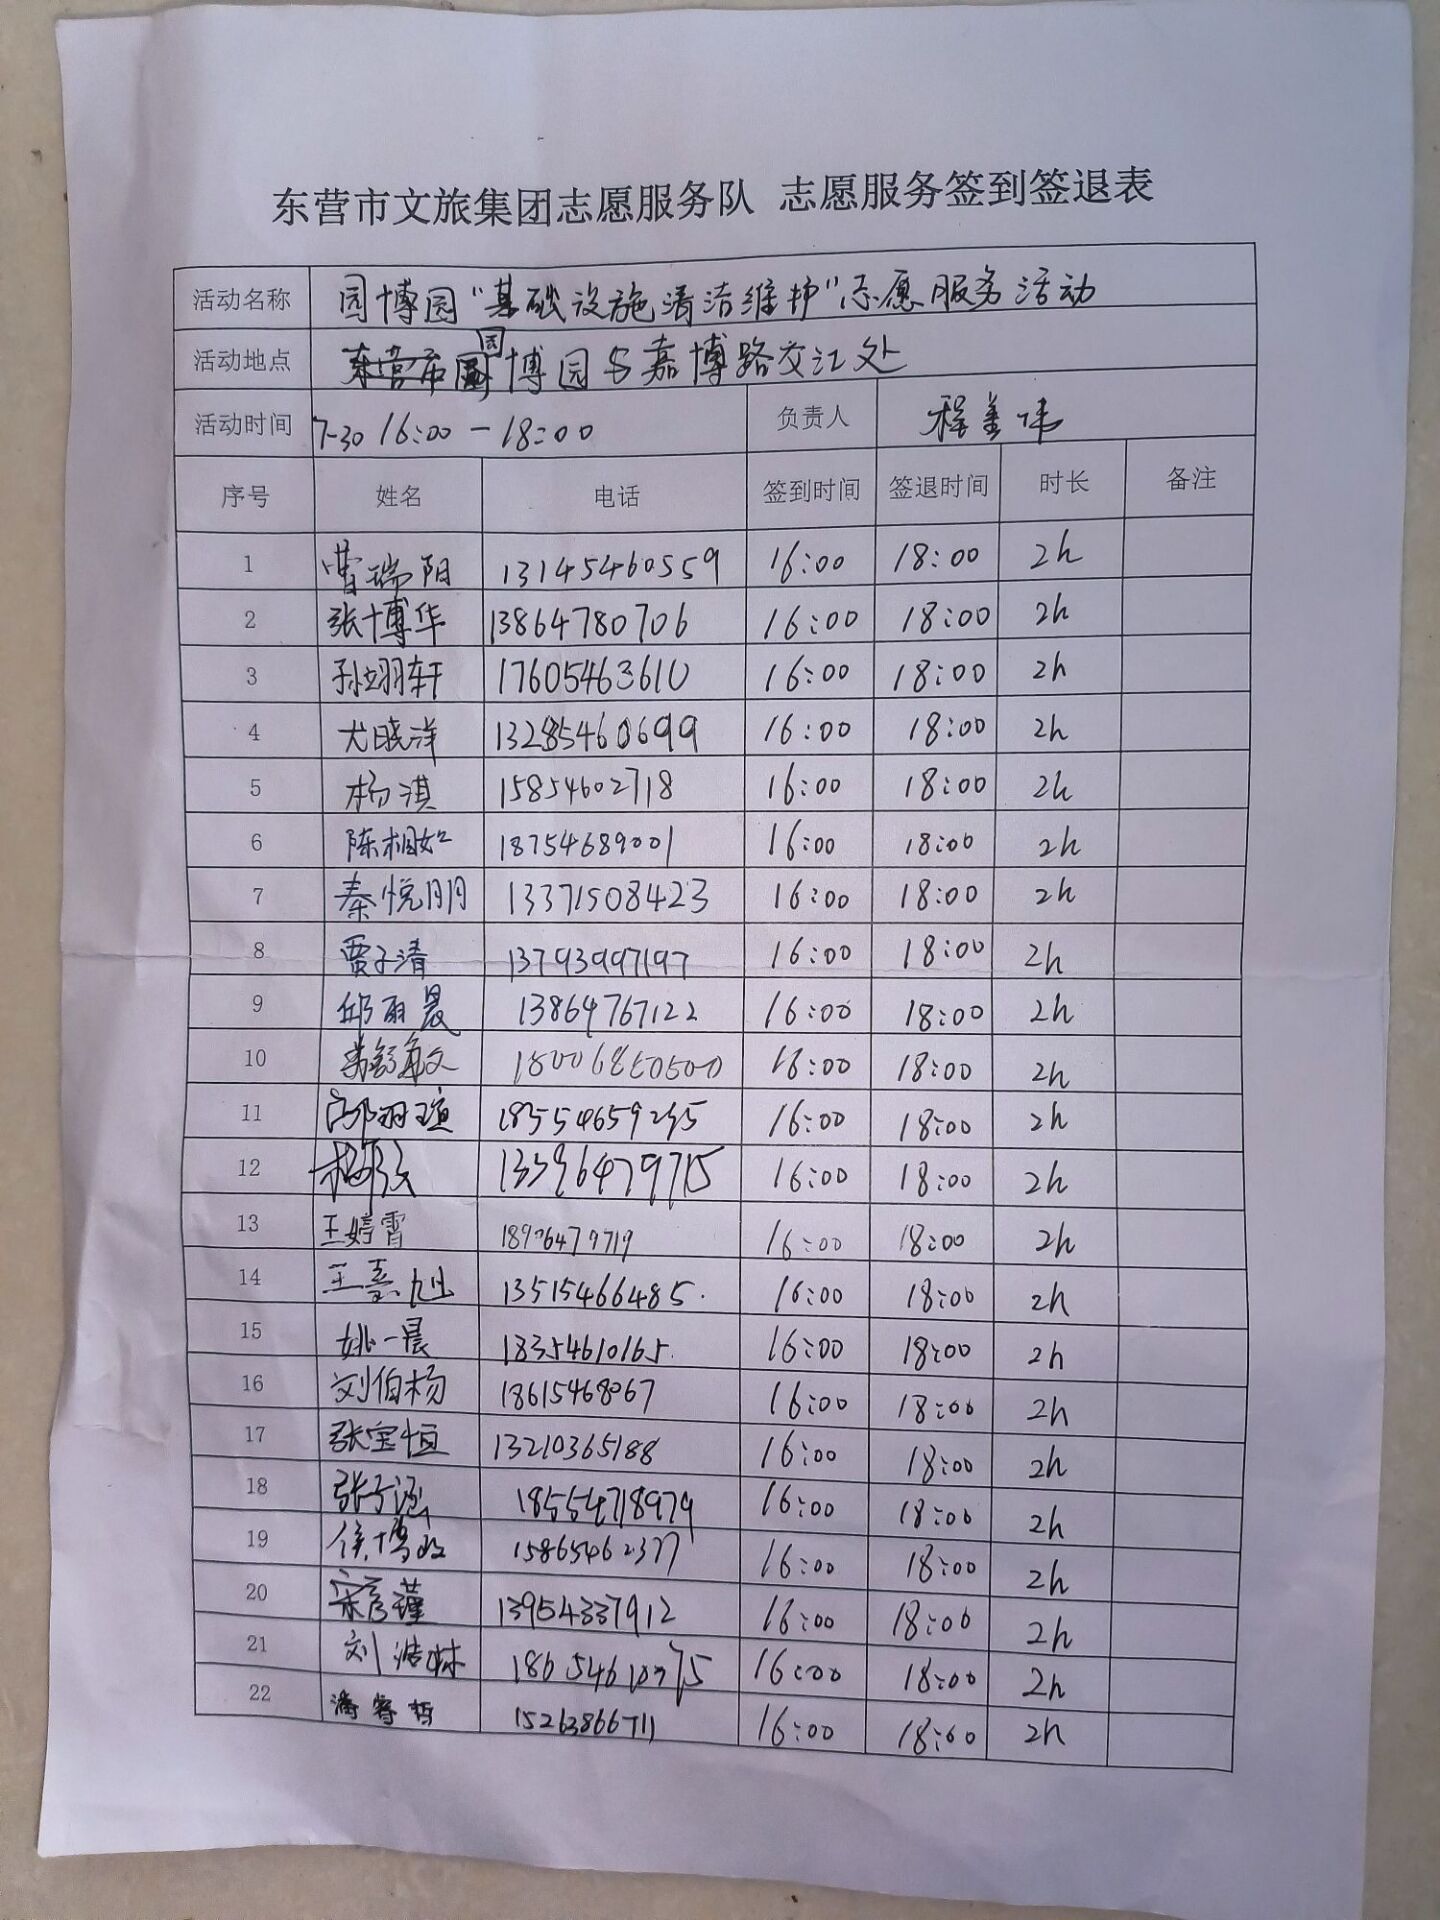 东营市文旅集团志愿服务队 志愿服务签到签退表
活动名称 园博园“基础设施清洁维护”志愿服务活动
活动地点 园博园与嘉博路交汇处
活动时间 7-30 16:00－18:00 负责人 程美伟
序号 姓名 电话 签到时间 签退时间 时长 备注
1 曹瑞阳 13145460559 16:00 18:00 2h
2 张博华 13864780706 16:00 18:00 2h
3 孙翊轩 17605463610 16:00 18:00 2h
4 尤晓洋 13285460699 16:00 18:00 2h
5 杨淇 15854602718 16:00 18:00 2h
6 陈相如 18754689001 16:00 18:00 2h
7 秦悦朋 13371508423 16:00 18:00 2h
8 贾子清 13793997197 16:00 18:00 2h
9 邱雨晨 13864767122 16:00 18:00 2h
10 16:00 18:00 2h
11 16:00 18:00 2h
12 13396479715 16:00 18:00 2h
13 王婷霄 16:00 18:00 2h
14 王熹旭 13515466485. 16:00 18:00 2h
15 姚一晨 18354610165. 16:00 18:00 2h
16 刘伯杨 18615468067 16:00 18:00 2h
17 张宝恒 13210365188 16:00 18:00 2h
18 张子涵 18554718979 16:00 18:00 2h
19 15865462377 16:00 18:00 2h
20 宋彦瑾 13954337912 16:00 18:00 2h
21 刘浩林 16:00 18:00 2h
22 15263866711 16:00 18:00 2h